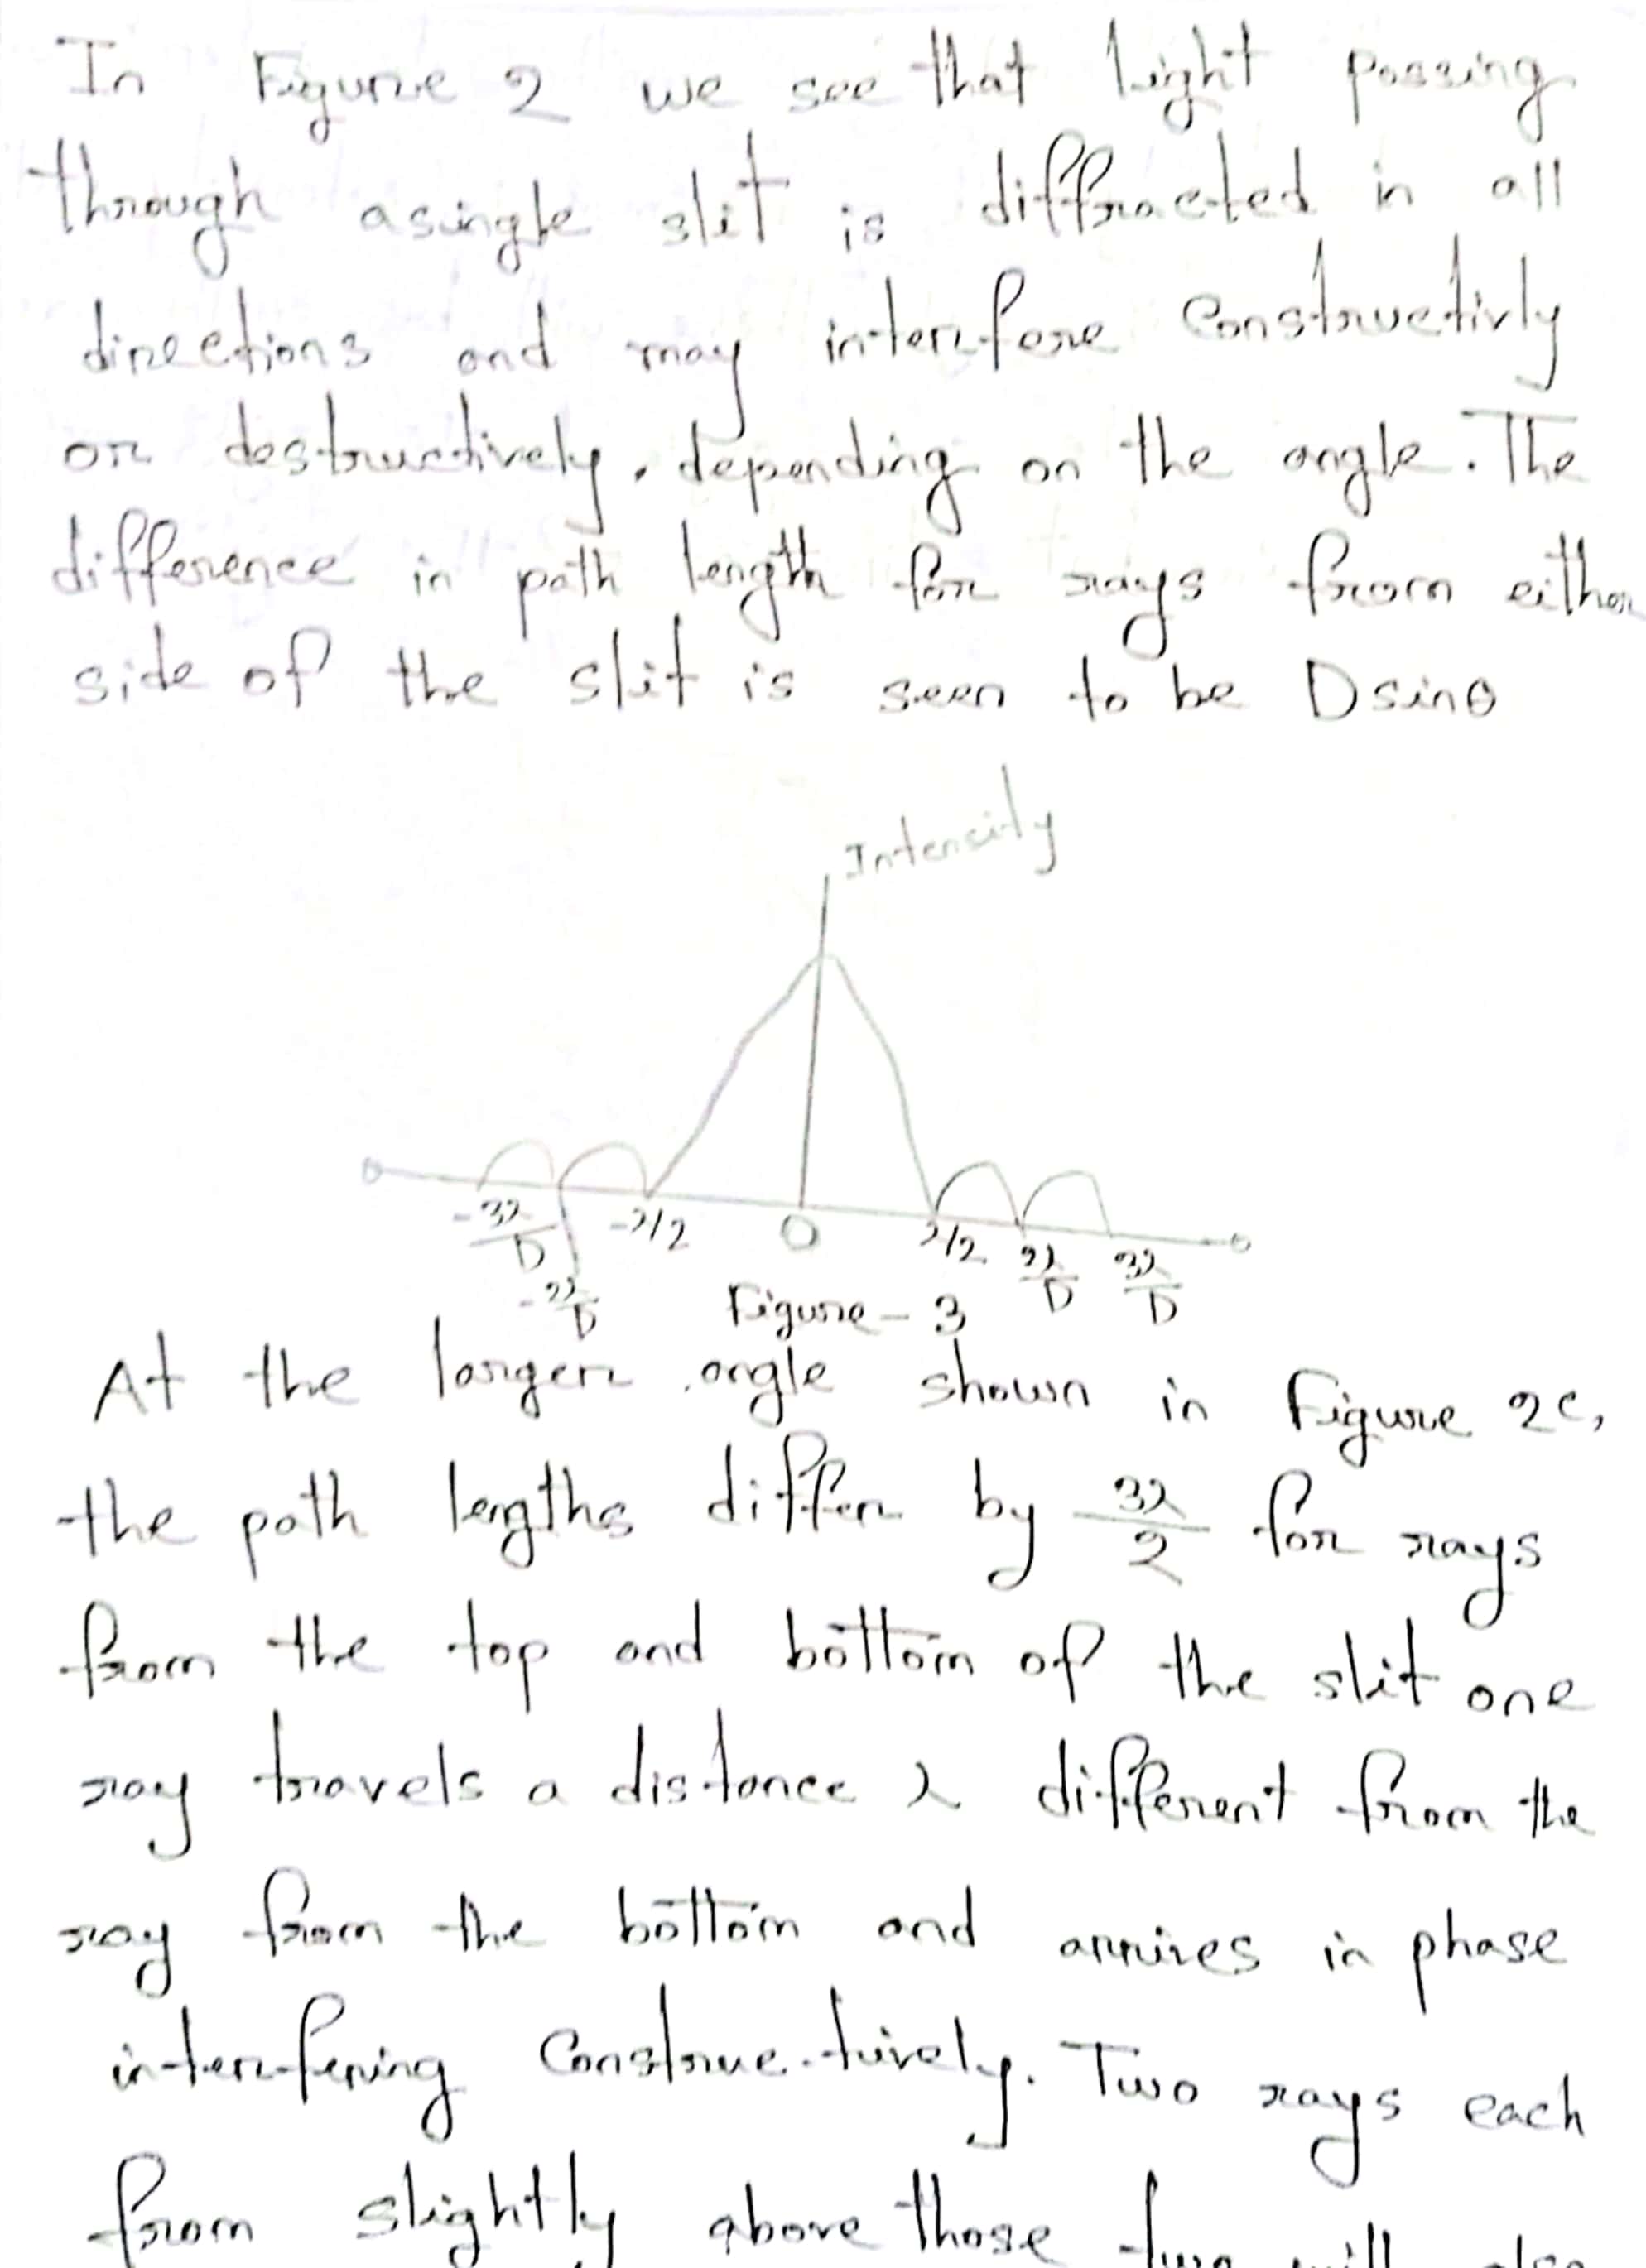 In Figure 2 we see that light passing
through a single slit is diffracted in all
directions and may interfere Constructivly
or destructively, depending on the angle. The
difference in path length for rays from either
side of the slit is seen to be D sinθ
Intencity
-3λ/D -2λ/D -λ/2 0 λ/2 2λ/D 3λ/D
Figure - 3
At the larger angle shown in Figure 2c,
the path lengths differ by 3λ/2 for rays
from the top and bottom of the slit one
ray travels a distance λ different from the
ray from the bottom and arrives in phase
interfering Constructively. Two rays each
from slightly above those two will also